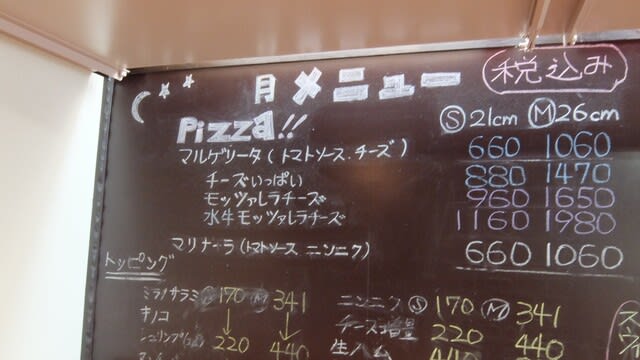 月 メニュー 税込み
Pizza!! Ⓢ21cm Ⓜ26cm
マルゲリータ(トマトソース.チーズ) 660 1060
チーズいっぱい 880 1470
モッツァレラチーズ 960 1650
水牛モッツァレラチーズ 1160 1980
マリナーラ(トマトソース ニンニク) 660 1060
トッピング
ミラノサラミ Ⓢ170 Ⓜ341 ニンニク Ⓢ170 Ⓜ341
キノコ ↓ ↓ チーズ増量 220 440
220 440 生ハム